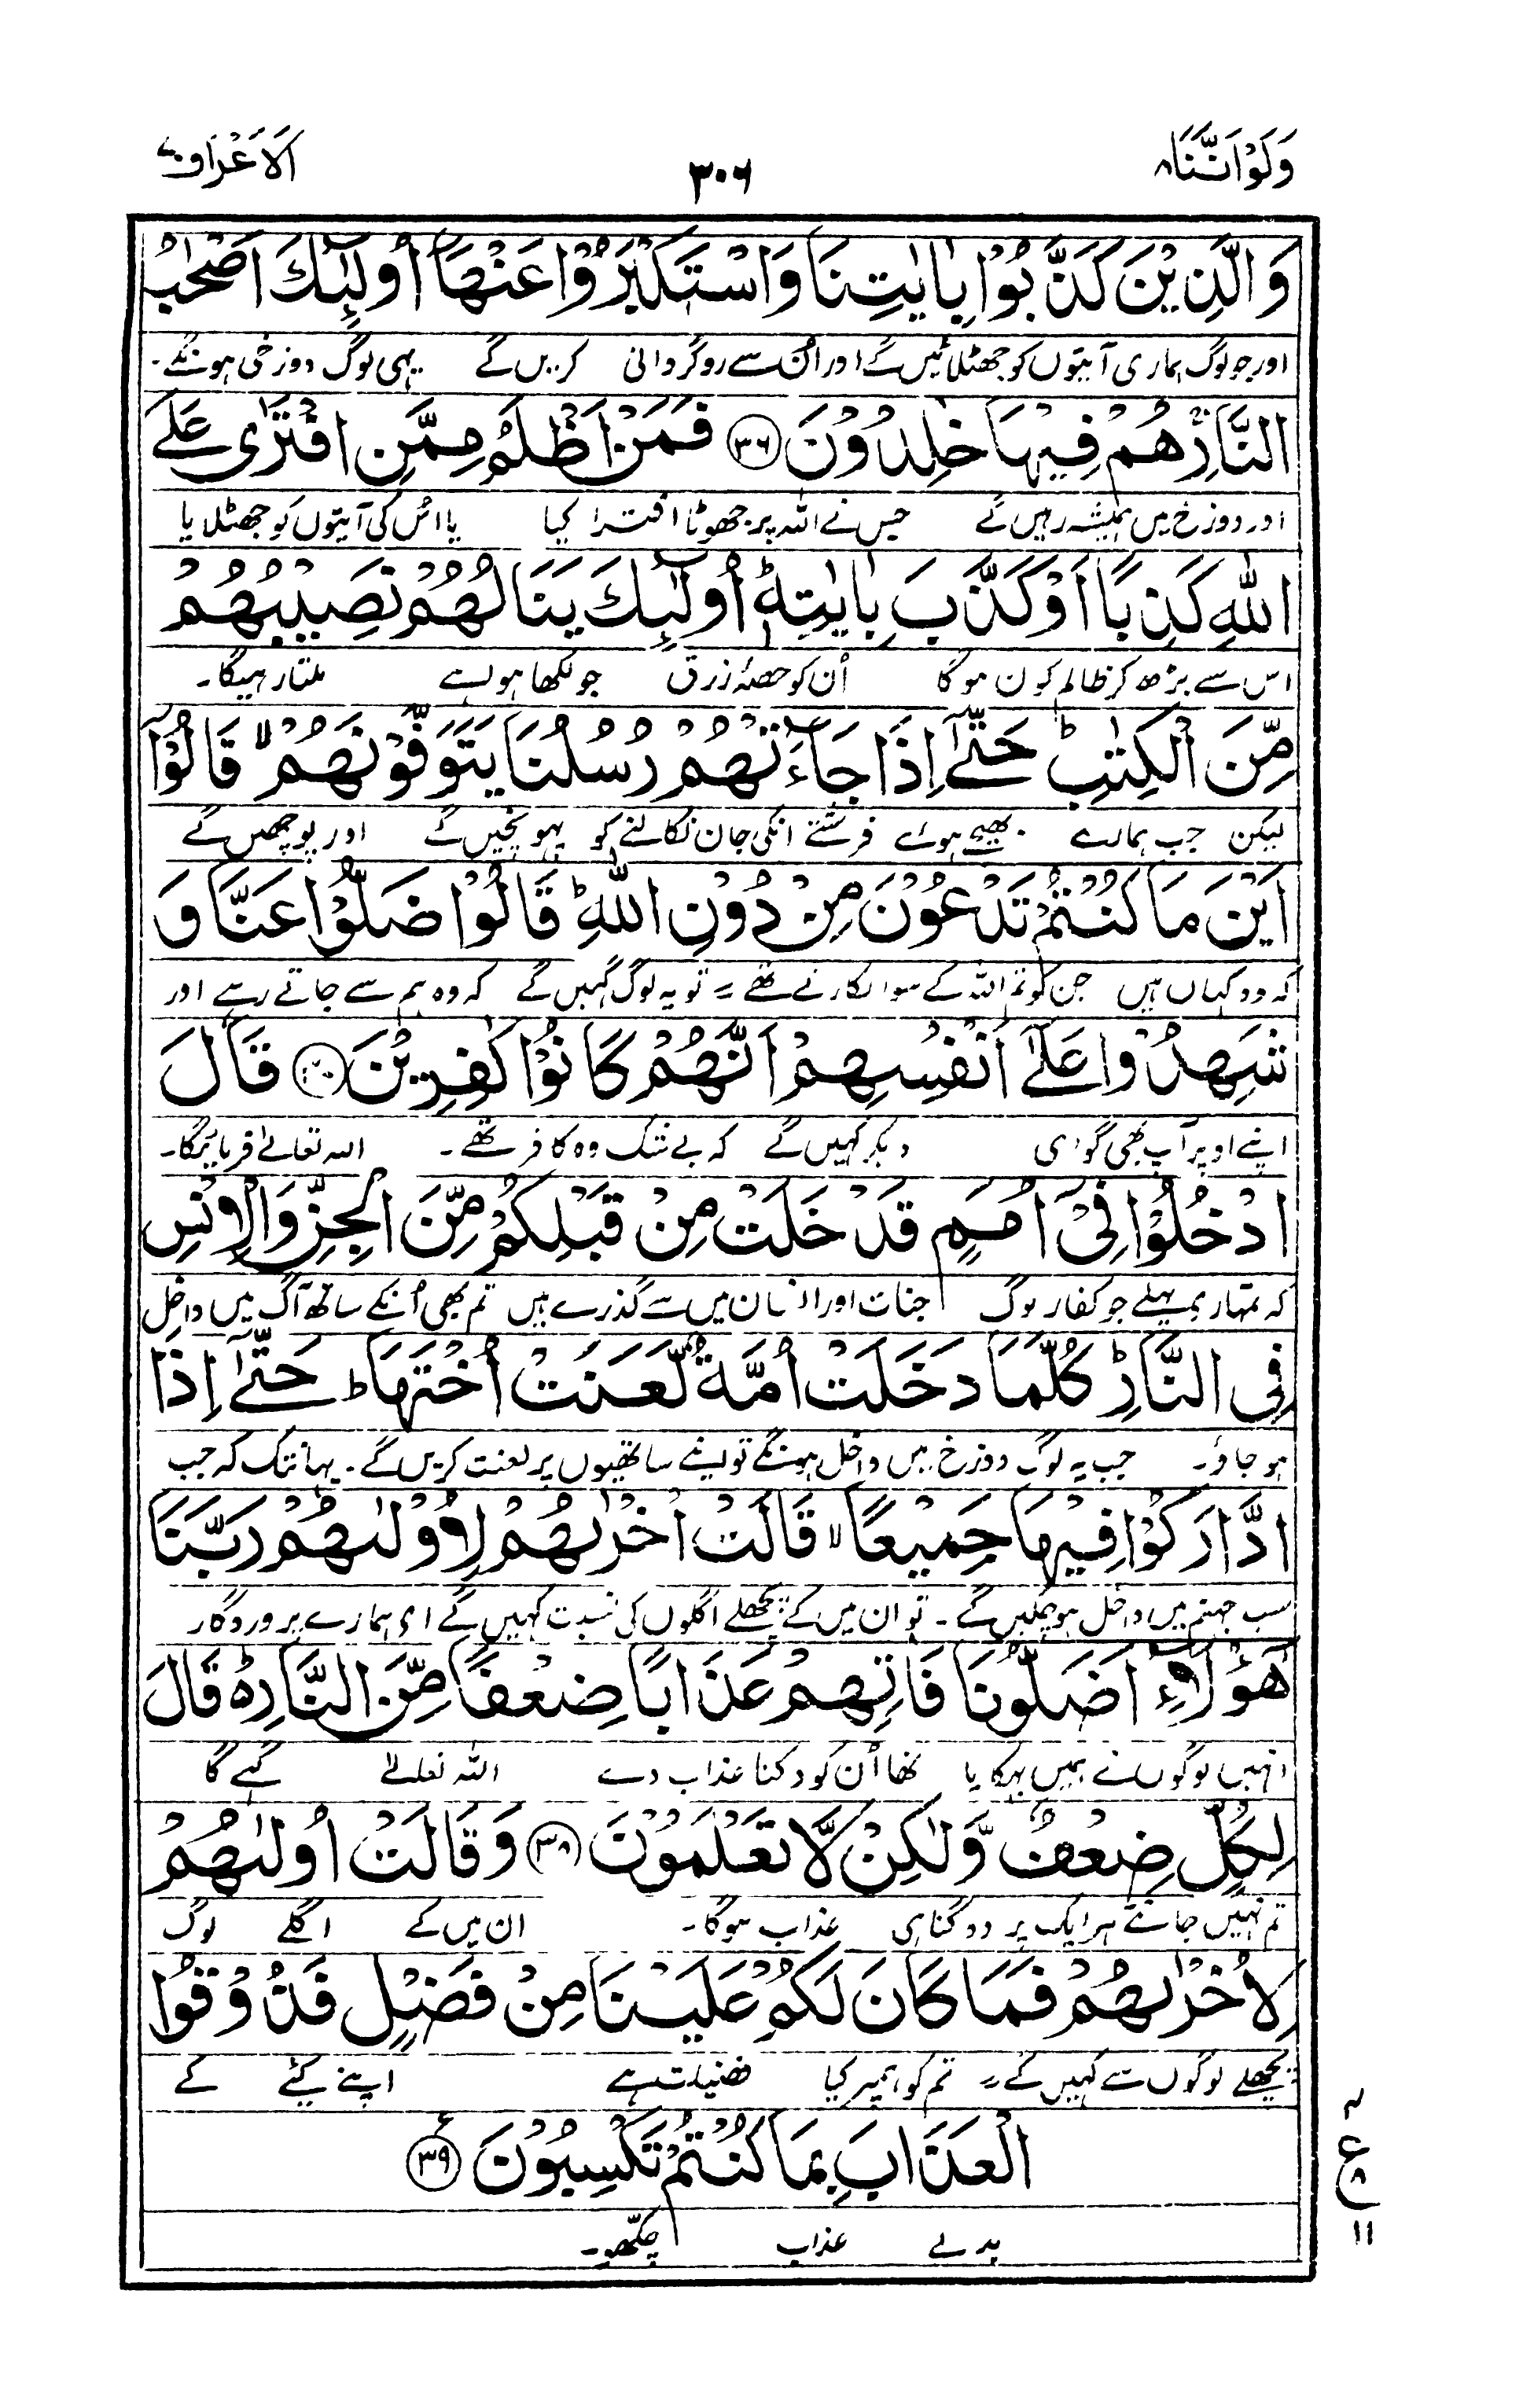 وَلَوْاَنَّنَا۸ ۳۰۶ اَلْاَعْرَاف۷
وَالَّذِيْنَ كَذَّبُوْا بِاٰيٰتِنَا وَاسْتَكْبَرُوْا عَنْهَآ اُولٰٓئِكَ اَصْحٰبُ
اور جو لوگ ہماری آیتوں کو جھٹلائیں گے اور اُن سے روگردانی کریں گے یہی لوگ دوزخی ہونگے۔
النَّارِ ۚ هُمْ فِيْهَا خٰلِدُوْنَ ۳۶ فَمَنْ اَظْلَمُ مِمَّنِ افْتَرٰى عَلَى
اور دوزخ میں ہمیشہ رہیں گے جس نے اللہ پر جھوٹا افترا کیا یا اُس کی آیتوں کو جھٹلایا
اللّٰهِ كَذِبًا اَوْ كَذَّبَ بِاٰيٰتِهٖ ؕ اُولٰٓئِكَ يَنَالُهُمْ نَصِيْبُهُمْ
اس سے بڑھ کر ظالم کون ہوگا اُن کو حصۂ رزق جو لکھا ہوا ہے ملتا رہیگا۔
مِّنَ الْكِتٰبِ ؕ حَتّٰٓى اِذَا جَآءَتْهُمْ رُسُلُنَا يَتَوَفَّوْنَهُمْ ۙ قَالُوْٓا
لیکن جب ہمارے بھیجے ہوئے فرشتے انکی جان نکالنے کو پہونچیں گے اور پوچھیں گے
اَيْنَ مَا كُنْتُمْ تَدْعُوْنَ مِنْ دُوْنِ اللّٰهِ ؕ قَالُوْا ضَلُّوْا عَنَّا وَ
کہ وہ کہاں ہیں جن کو تم اللہ کے سوا پکارتے تھے تو یہ لوگ کہیں گے کہ وہ ہم سے جاتے رہے اور
شَهِدُوْا عَلٰٓى اَنْفُسِهِمْ اَنَّهُمْ كَانُوْا كٰفِرِيْنَ ۳۷ قَالَ
اپنے اوپر آپ بھی گواہی دیکر کہیں گے کہ بے شک وہ کافر تھے۔ اللہ تعالےٰ فرمائیگا۔
ادْخُلُوْا فِيْٓ اُمَمٍ قَدْ خَلَتْ مِنْ قَبْلِكُمْ مِّنَ الْجِنِّ وَالْاِنْسِ
کہ تمہارے پہلے جو کفار لوگ جنات اور انسان میں سے گذرے ہیں تم بھی اُنکے ساتھ آگ میں داخل
فِى النَّارِ ؕ كُلَّمَا دَخَلَتْ اُمَّةٌ لَّعَنَتْ اُخْتَهَا ؕ حَتّٰٓى اِذَا
ہو جاؤ۔ جب یہ لوگ دوزخ میں داخل ہونگے تو اپنے ساتھیوں پر لعنت کریں گے۔ یہانتک کہ جب
ادَّارَكُوْا فِيْهَا جَمِيْعًا ۙ قَالَتْ اُخْرٰىهُمْ لِاُوْلٰىهُمْ رَبَّنَا
سب جہنم میں داخل ہو چکیں گے۔ تو ان میں کے پچھلے اگلوں کی نسبت کہیں گے ای ہمارے پروردگار
هٰٓؤُلَآءِ اَضَلُّوْنَا فَاٰتِهِمْ عَذَابًا ضِعْفًا مِّنَ النَّارِ ۬ؕ قَالَ
انہیں لوگوں نے ہمیں بہکایا تھا اُن کو دگنا عذاب دے اللہ تعالےٰ کہے گا
لِكُلٍّ ضِعْفٌ وَّلٰكِنْ لَّا تَعْلَمُوْنَ ۳۸ وَقَالَتْ اُوْلٰىهُمْ
تم نہیں جانتے ہر ایک پر دوگنا ہی عذاب ہوگا۔ ان میں کے اگلے لوگ
لِاُخْرٰىهُمْ فَمَا كَانَ لَكُمْ عَلَيْنَا مِنْ فَضْلٍ فَذُوْقُوا
پچھلے لوگوں سے کہیں گے تم کو ہم پر کیا فضیلت ہے اپنے کیئے کے
الْعَذَابَ بِمَا كُنْتُمْ تَكْسِبُوْنَ ۳۹
بدلے عذاب چکھو۔
ع
۸
۱۱